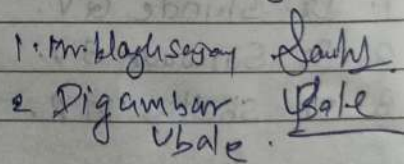 1. Mr. Waghsagar
2 Digambar Ubale
Ubale.